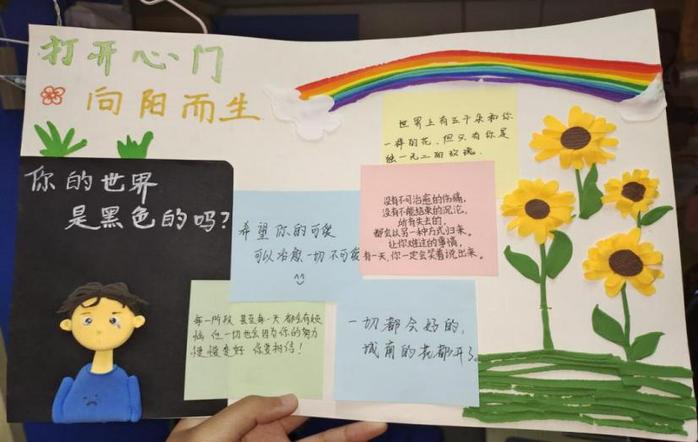 打开心门
向阳而生
你的世界
是黑色的吗?
世界上有五千朵和你
一样的花,但只有你是
独一无二的玫瑰.
希望你的可爱
可以治愈一切不可爱
没有不可治愈的伤痛,
没有不能结束的沉沦,
所有失去的,
都会以另一种方式归来.
让你难过的事情,
有一天,你一定会笑着说出来.
每一阶段 甚至每一天 都会有烦
恼 但一切也会因为你的努力
慢慢变好 你要相信!
一切都会好的,
城南的花都开了.